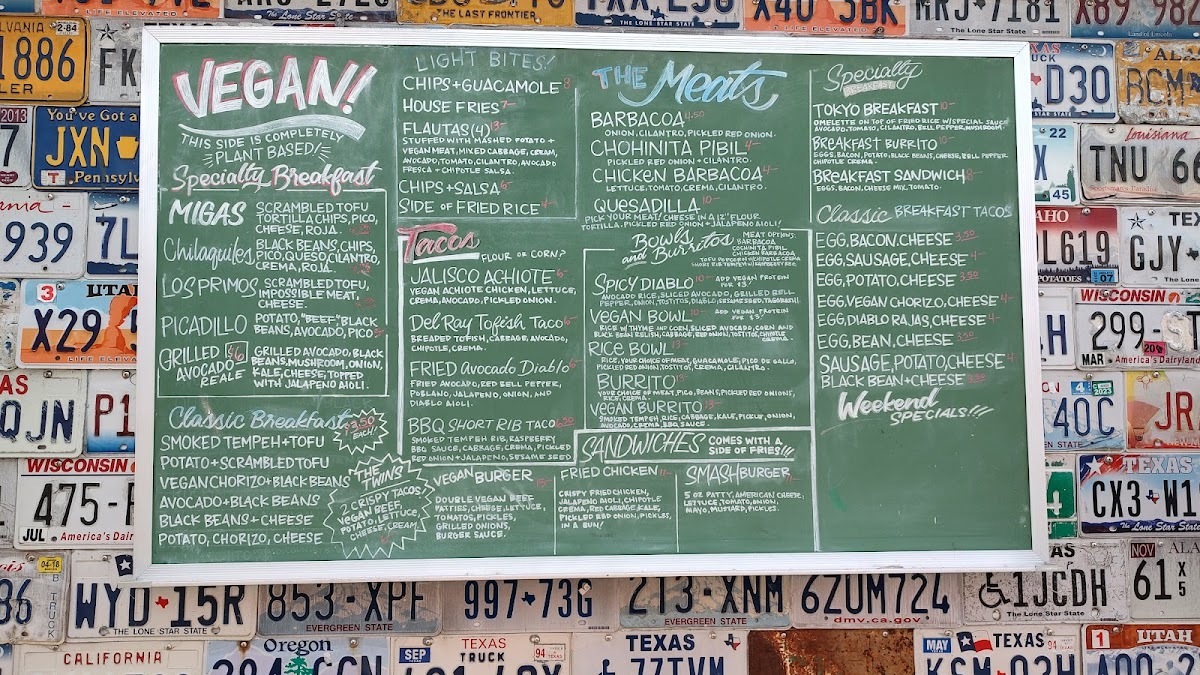 VEGAN!
THIS SIDE IS COMPLETELY
PLANT BASED!
Specialty Breakfast
MIGAS
SCRAMBLED TOFU
TORTILLA CHIPS, PICO,
CHEESE, ROJA.
Chilaquiles
BLACK BEANS, CHIPS,
PICO, QUESO, CILANTRO,
CREMA, ROJA.
LOS PRIMOS
SCRAMBLED TOFU,
IMPOSSIBLE MEAT,
CHEESE.
PICADILLO
POTATO, "BEEF", BLACK
BEANS, AVOCADO, PICO
GRILLED
AVOCADO
REALE
$6
GRILLED AVOCADO, BLACK
BEANS, MUSHROOM, ONION,
KALE, CHEESE, TOPPED
WITH JALAPENO AIOLI.
Classic Breakfast
$3.50
EACH!
SMOKED TEMPEH+TOFU
POTATO+SCRAMBLED TOFU
VEGAN CHORIZO+BLACK BEANS
AVOCADO+BLACK BEANS
BLACK BEANS+CHEESE
POTATO, CHORIZO, CHEESE
THE TWINS
2 CRISPY TACOS
VEGAN BEEF,
POTATO, LETTUCE,
CHEESE, CREAM.
LIGHT BITES!
CHIPS+GUACAMOLE 8
HOUSE FRIES 7-
FLAUTAS (4) 13-
STUFFED WITH MASHED POTATO +
VEGAN MEAT, MIXED CABBAGE, CREAM,
AVOCADO, TOMATO, CILANTRO, AVOCADO
FRESCA + CHIPOTLE SALSA.
CHIPS+SALSA 6-
SIDE OF FRIED RICE 4-
Tacos
FLOUR OR CORN?
JALISCO ACHIOTE 6-
VEGAN ACHIOTE CHICKEN, LETTUCE,
CREMA, AVOCADO, PICKLED ONION.
Del Ray Tofish Taco 6-
BREADED TOFISH, CABBAGE, AVOCADO,
CHIPOTLE, CREMA.
FRIED Avocado Diablo 6-
FRIED AVOCADO, RED BELL PEPPER,
POBLANO, JALAPENO, ONION, AND
DIABLO AIOLI.
BBQ SHORT RIB TACO 6.50
SMOKED TEMPEH RIB, RASPBERRY
BBQ SAUCE, CABBAGE, CREMA, PICKLED
RED ONION+JALAPENO, SESAME SEED
VEGAN BURGER 13-
DOUBLE VEGAN BEEF
PATTIES, CHEESE, LETTUCE,
TOMATOS, PICKLES,
GRILLED ONIONS,
BURGER SAUCE.
THE Meats
BARBACOA 4.50
ONION, CILANTRO, PICKLED RED ONION.
COHINITA PIBIL 4-
PICKLED RED ONION + CILANTRO.
CHICKEN BARBACOA 4-
LETTUCE, TOMATO, CREMA, CILANTRO.
QUESADILLA 10-
PICK YOUR MEAT! CHEESE IN A 12" FLOUR
TORTILLA. PICKLED RED ONION + JALAPENO AIOLI!
Bowls
and Burritos
MEAT OPTIONS:
BARBACOA
COCHINITA PIBIL
CHICKEN BARBACOA
SPICY DIABLO 10-
ADD VEGAN PROTEIN
FOR $3!
AVOCADO RICE, SLICED AVOCADO, GRILLED BELL
VEGAN BOWL 10-
ADD VEGAN PROTEIN
FOR $3!
RICE W/ THYME AND CORN, SLICED AVOCADO, CORN AND
BLACK BEAN RELISH, CABBAGE, RED ONION, TOSTITOS, CHIPOTLE
CREMA.
RICE BOWL 13-
RICE, YOUR CHOICE OF MEAT, GUACAMOLE, PICO DE GALLO,
PICKLED RED ONION, TOSTITOS, CREMA, CILANTRO.
BURRITO 13-
YOUR CHOICE OF MEAT, PICO, BEANS, PICKLED RED ONIONS,
RICE, CREMA.
VEGAN BURRITO 13-
SMOKED TEMPEH, RICE, CABBAGE, KALE, PICKLE, ONION,
AVOCADO, CREMA, BBQ SAUCE.
SANDWICHES
COMES WITH A
SIDE OF FRIES!!!
FRIED CHICKEN 11-
CRISPY FRIED CHICKEN,
JALAPENO AIOLI, CHIPOTLE
CREMA, RED CABBAGE, KALE,
PICKLED RED ONION, PICKLES,
IN A BUN!
SMASHBURGER
5 OZ PATTY, AMERICAN CHEESE,
LETTUCE, TOMATO, ONION,
MAYO, MUSTARD, PICKLES.
Specialty
BREAKFAST
TOKYO BREAKFAST 10-
OMELETTE ON TOP OF FRIED RICE W/SPECIAL SAUCE
AVOCADO, TOMATO, CILANTRO, BELL PEPPER, MUSHROOM.
BREAKFAST BURRITO 10-
EGGS, BACON, POTATO, BLACK BEANS, CHEESE, BELL PEPPER
CHIPOTLE CREMA.
BREAKFAST SANDWICH 8-
EGGS, BACON, CHEESE MIX, TOMATO.
Classic BREAKFAST TACOS
EGG, BACON, CHEESE 3.50
EGG, SAUSAGE, CHEESE 4-
EGG, POTATO, CHEESE 3.50
EGG, VEGAN CHORIZO, CHEESE 4-
EGG, DIABLO RAJAS, CHEESE 4-
EGG, BEAN, CHEESE 3.50
SAUSAGE, POTATO, CHEESE 4
BLACK BEAN+CHEESE 3.50
Weekend
SPECIALS!!!
THE LAST FRONTIER
The Lone Star State
MRJ 7181
The Lone Star State
1886
2-84
FK
D30
2013
You've Got a
JXN
Pennsylv
22
45
Louisiana
TNU
939
7L
DL619
07
TEXAS
GJY
3
UTAH
X29
LIFE ELEVATED
WISCONSIN
299
MAR
America's Dairyland
QJN
P1
4
2023
40C
JR
WISCONSIN
475
JUL
America's Dair
TEXAS
CX3 W1
The Lone Star State
04-18
TRUCK
86
WYD 15R
THE LONE STAR STATE
853-XPF
EVERGREEN STATE
997 73G
213-XNM
EVERGREEN STATE
6ZUM724
dmv.ca.gov
1JCDH
The Lone Star State
NOV
61
X5
CALIFORNIA
Oregon
SEP
TEXAS
TRUCK
94
TEXAS
77TVM
MAY
TEXAS
94
1
UTAH